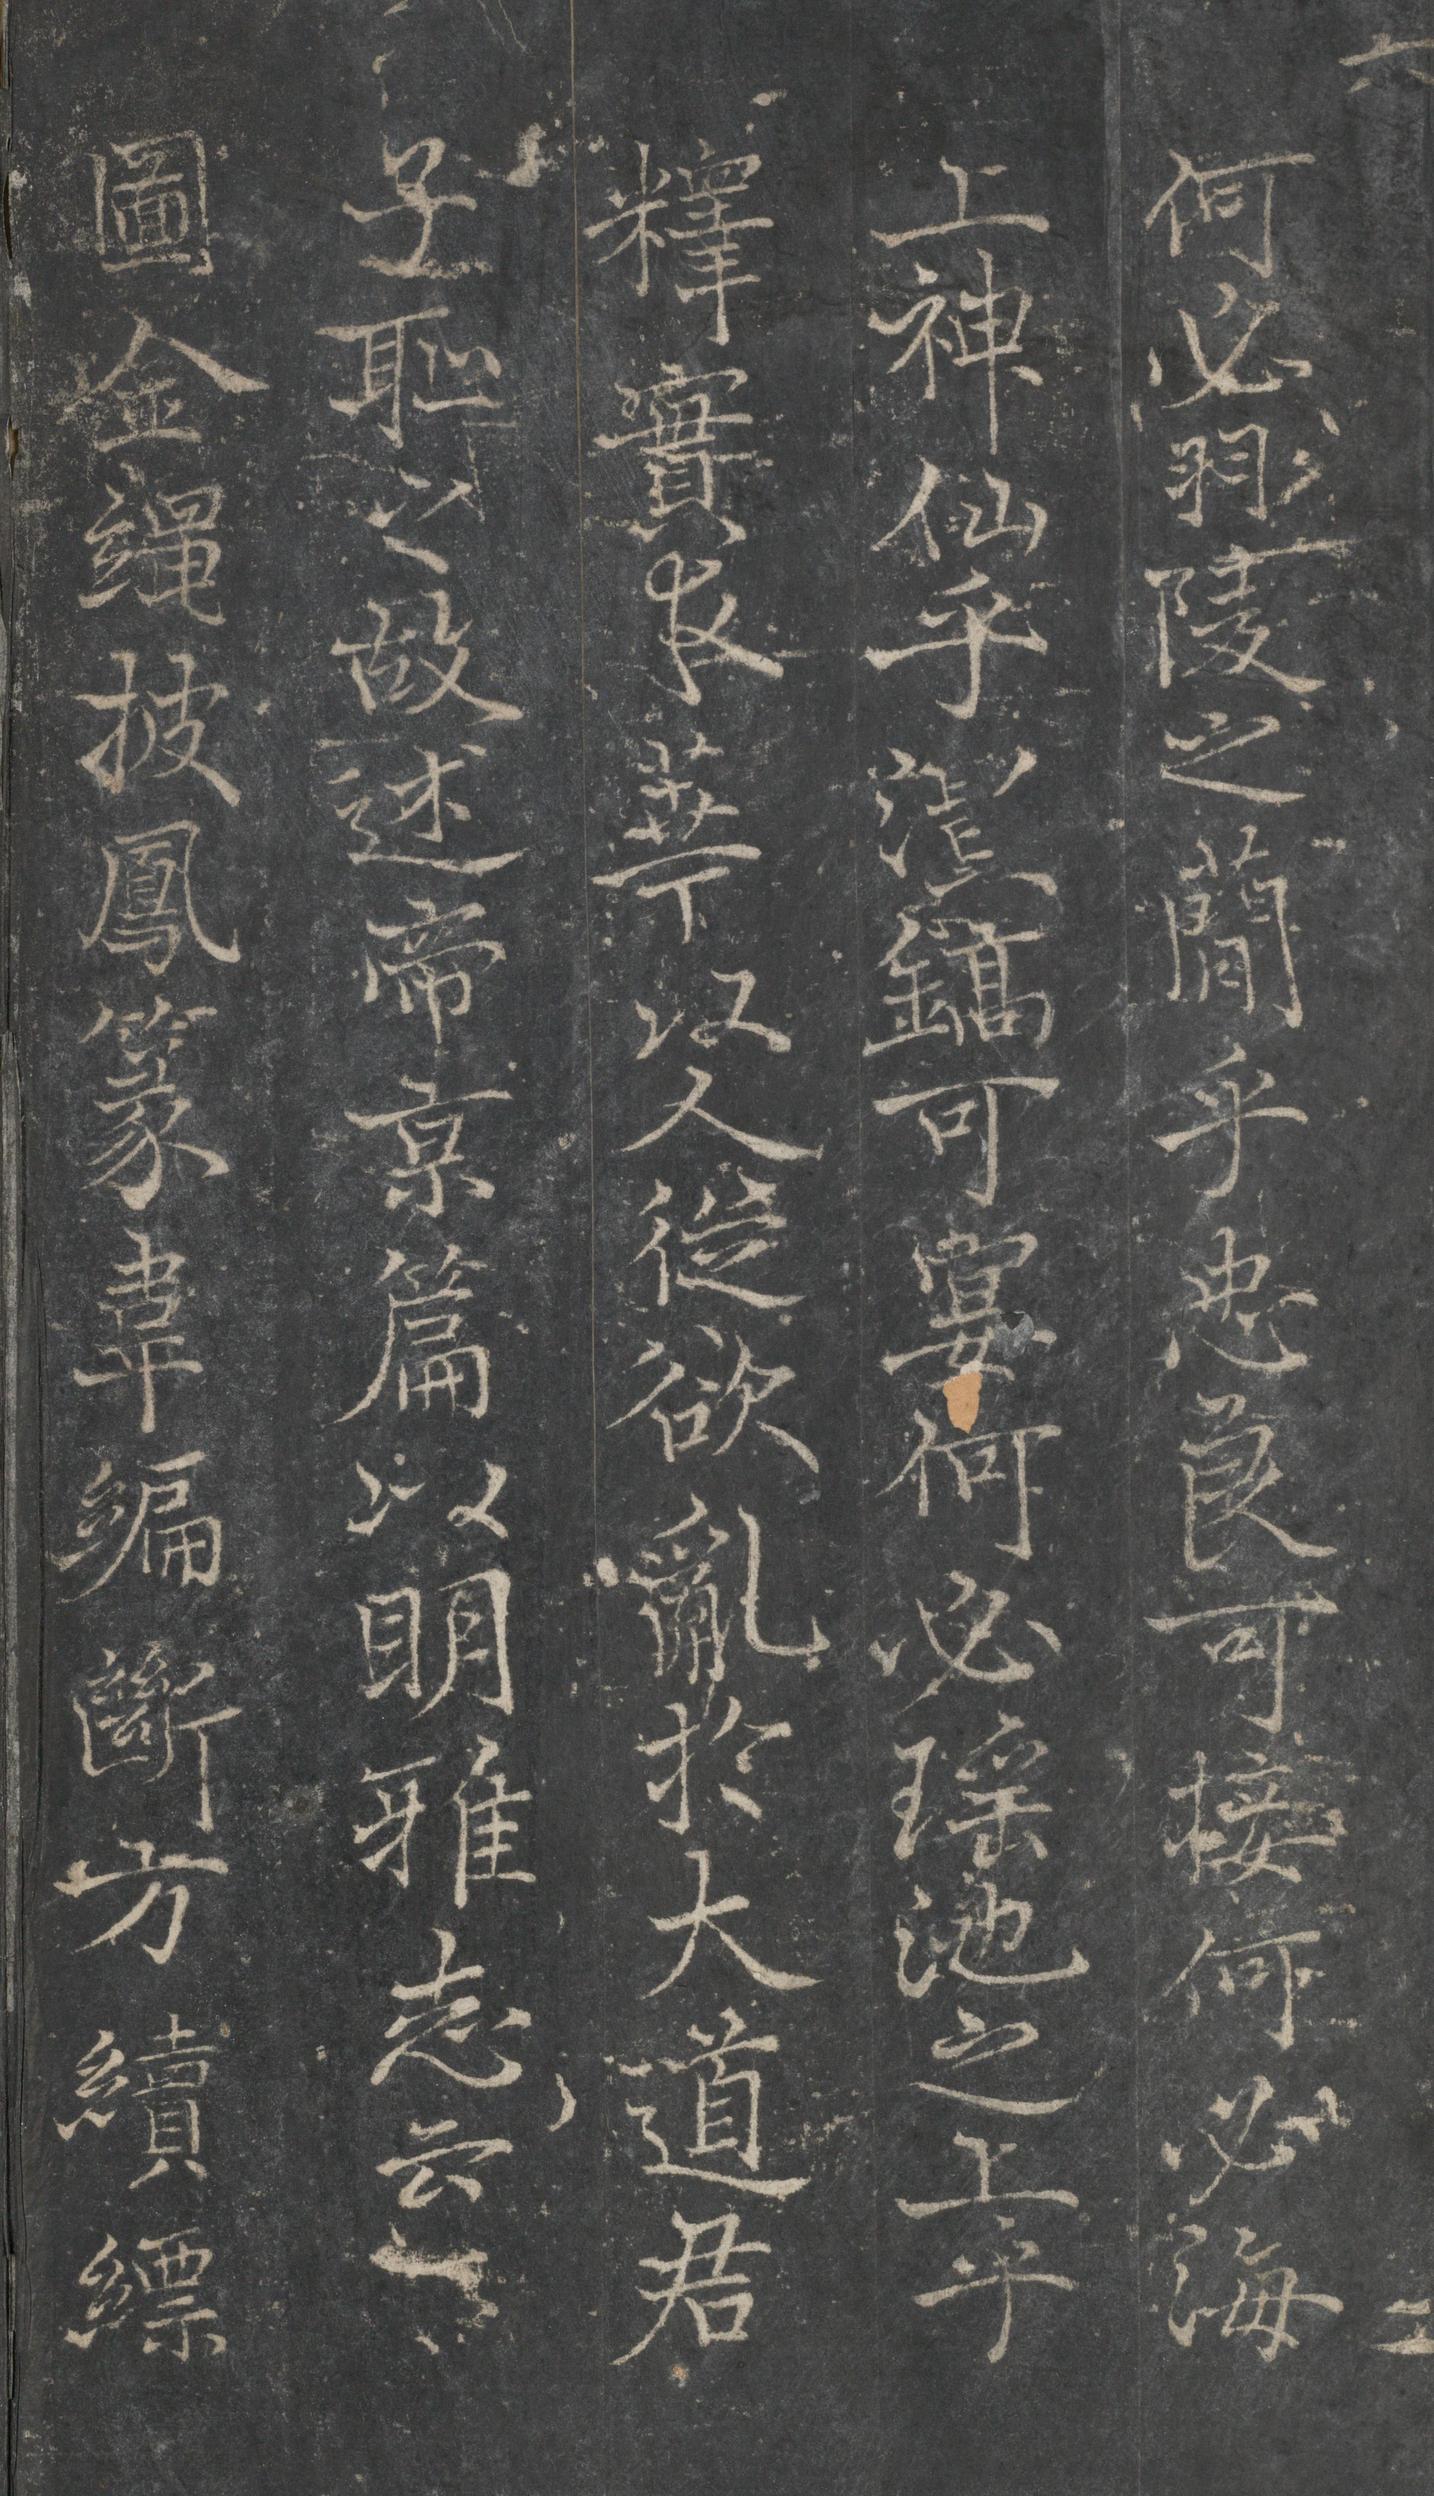 何必羽陵之簡乎忠良可接何必海
上神仙乎鎬可宴何必瑶池之上乎
釋實求華以人從欲亂於大道君
子耻之故述帝京篇以明雅志云
圖金繩披鳳篆韋編斷方續縹